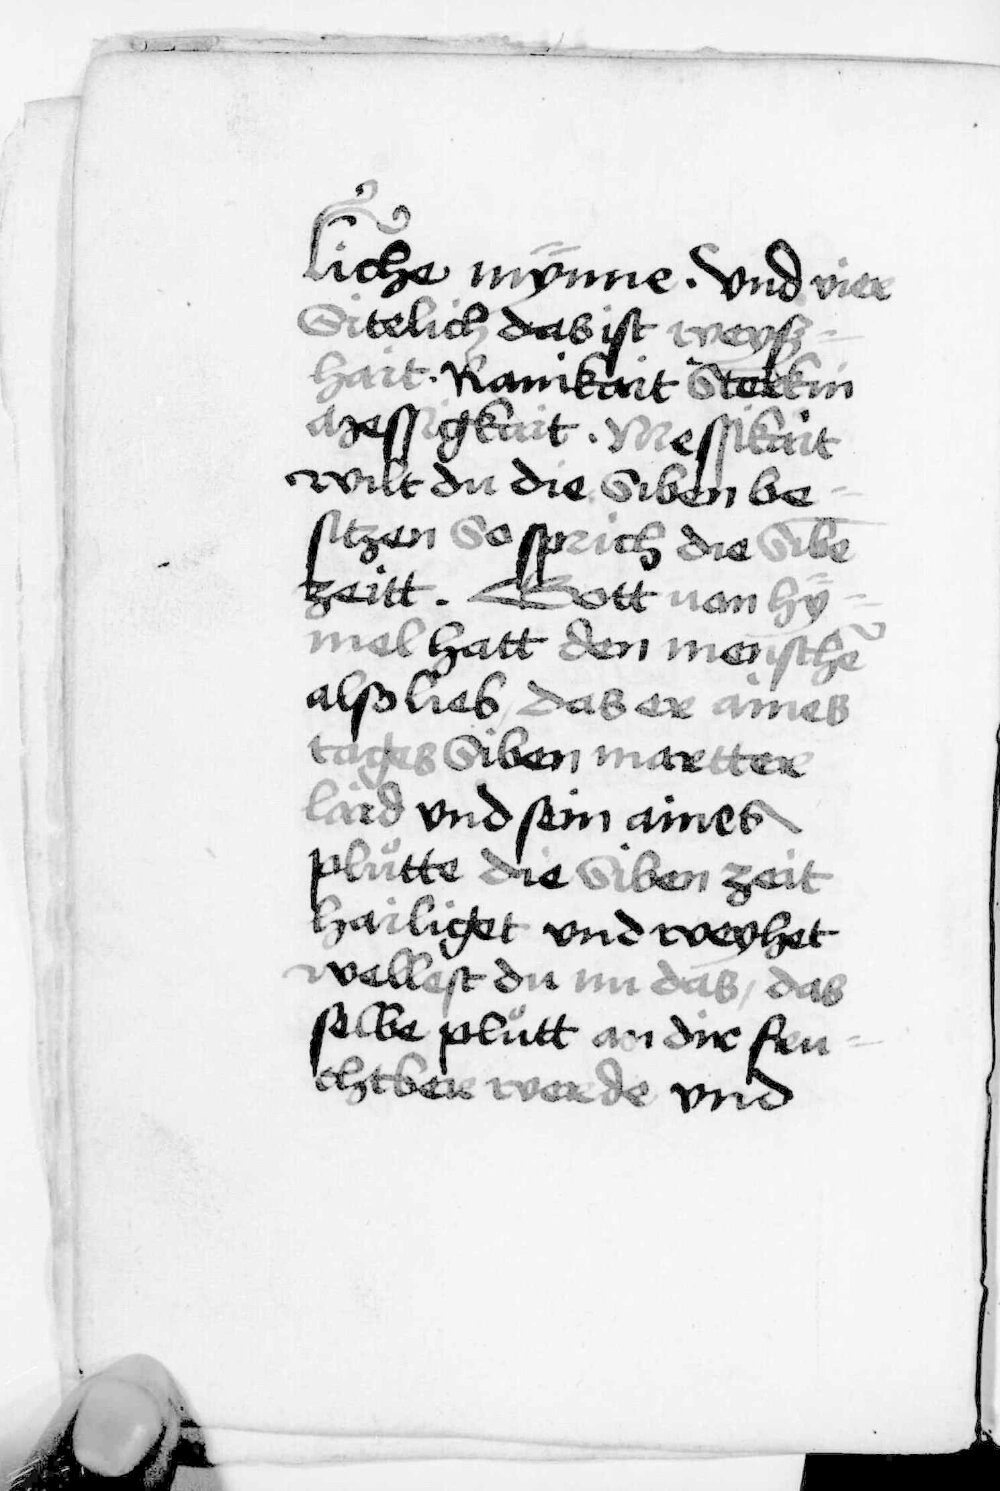 liche mÿnne. Vnd vier
Sitelich das ist weysz=
hait. Rainikait Sterkin
messigkait. Messikait
wilt du die Siben be=
sitzen So sprich die Sibē
zeitt. Gott von hÿ=
mel hatt den menschē
also lieb, das er aines
tages Siben martter
laid vnd sein aines
plůtte die Siben zeit
hailiget vnd weyhet
wellest du nu das, das
selbe plůtt an dir fru=
chtber werde vnd